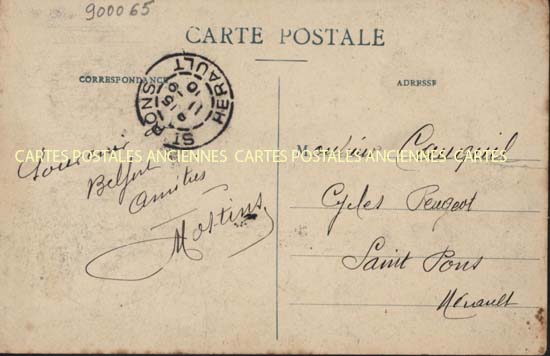 900065
CARTE POSTALE
CORRESPONDANCE
ADRESSE
ST PONS
HERAULT
CARTES POSTALES ANCIENNES CARTES POSTALES ANCIENNES
Souvenir
Belfort
Amitiés
Monsieur Cauquil
Cycles Peugeot
Saint Pons
Hérault